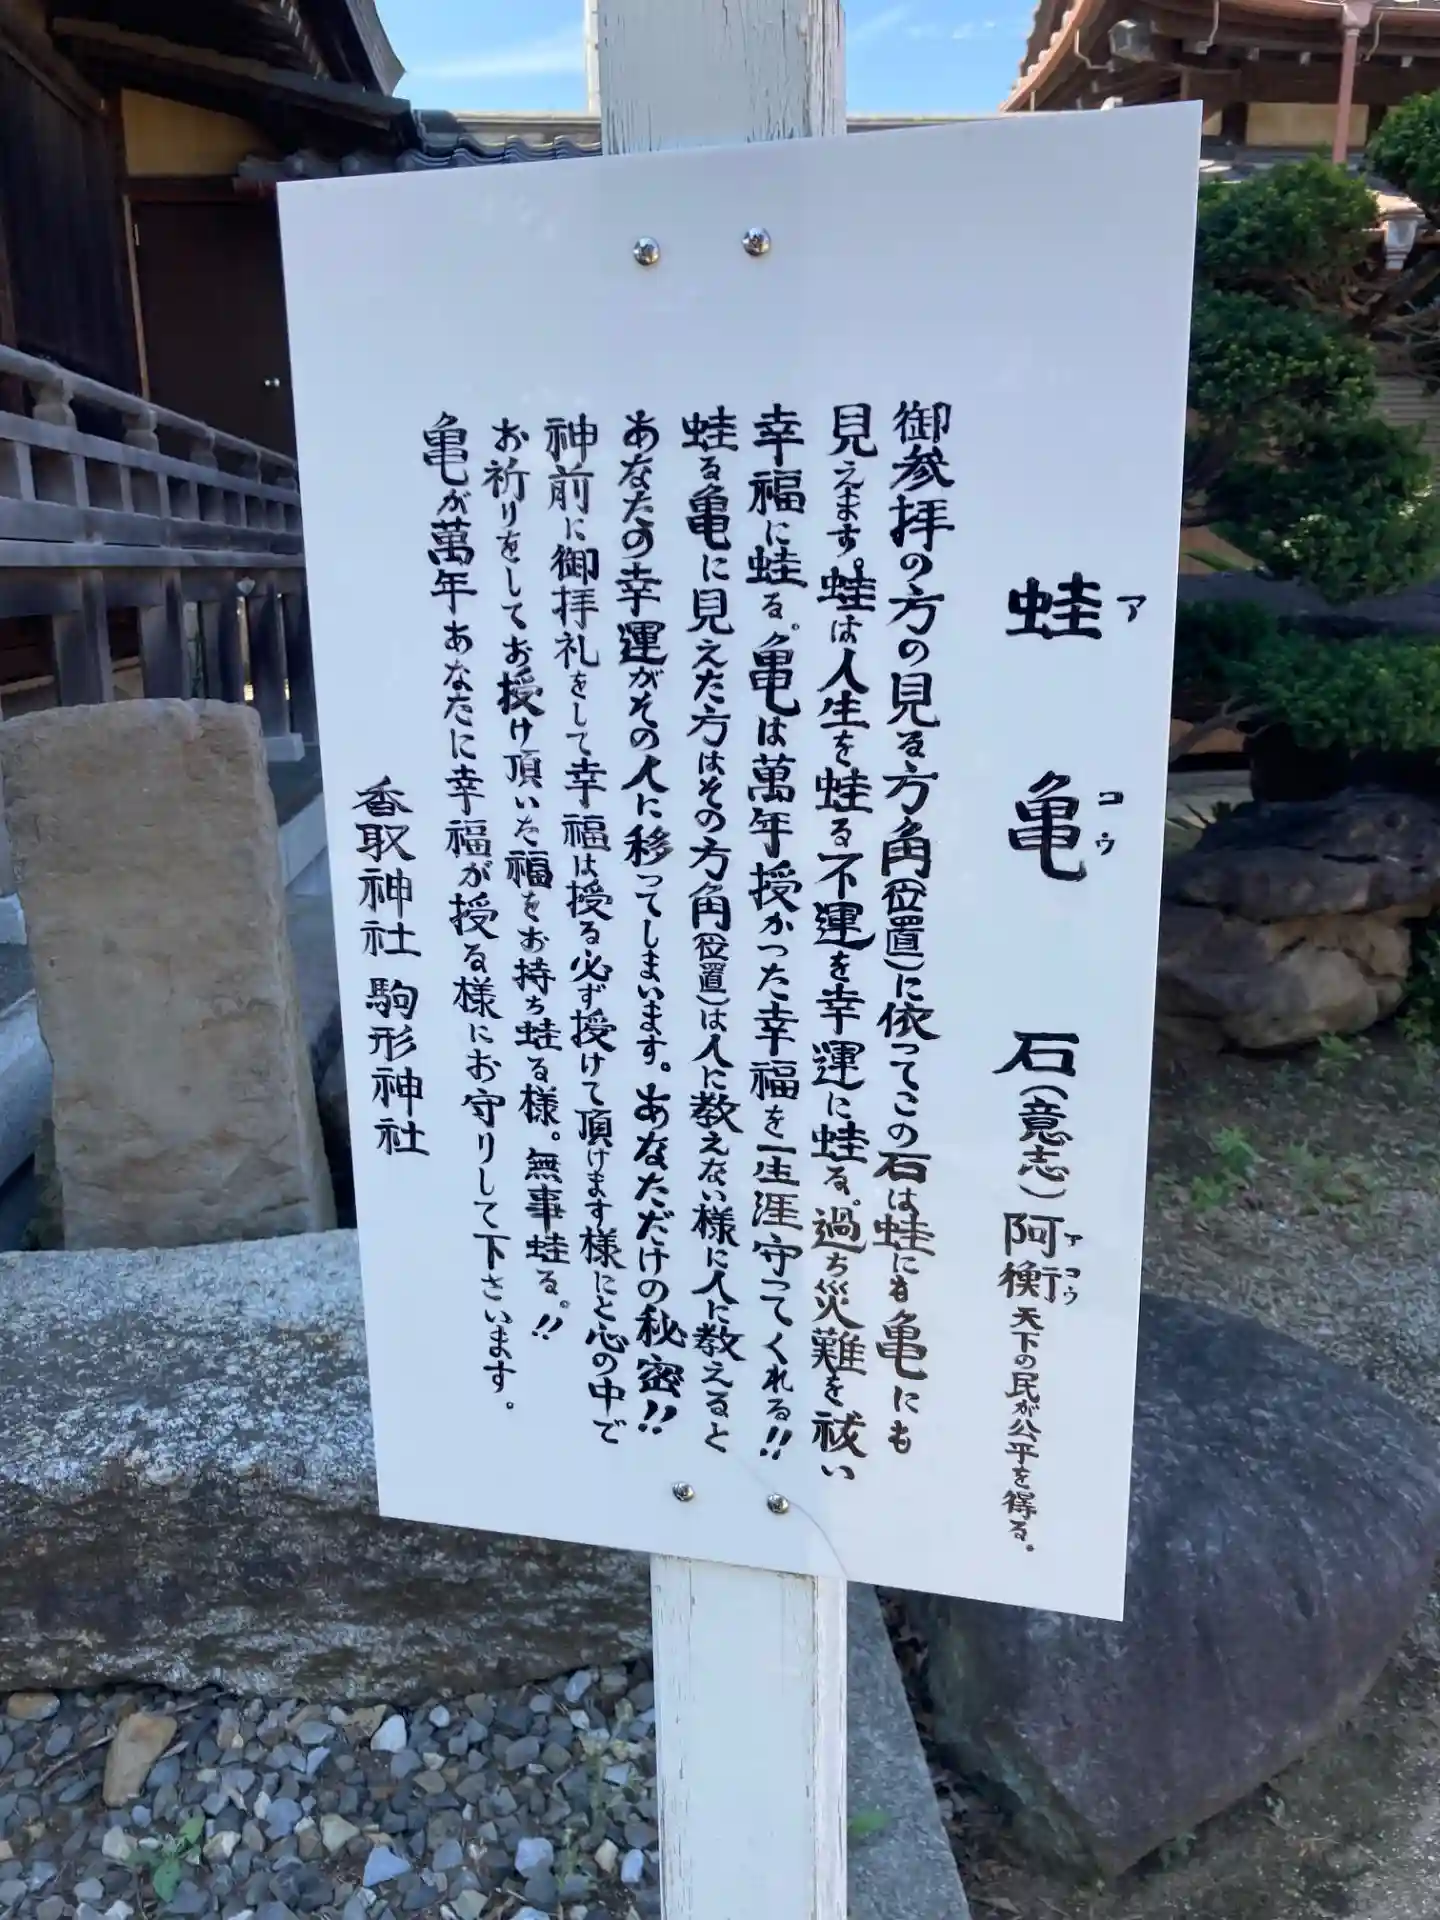 蛙亀石(意志)阿衡天下の民が公平を得る。
ア
コウ
アコウ
御参拝の方の見る方角(位置)に依ってこの石は蛙にも亀にも
見えます。蛙は人生を蛙る不運を幸運に蛙る。過ち災難を祓い
幸福に蛙る。亀は萬年授かった幸福を一生涯守ってくれる!!
蛙る亀に見えた方はその方角(位置)は人に教えない様に人に教えると
あなたの幸運がその人に移ってしまいます。あなただけの秘密!!
神前に御拝礼をして幸福は授る必ず授けて頂けます様にと心の中で
お祈りをしてお授け頂いた福をお持ち蛙る様。無事蛙る。!!
亀が萬年あなたに幸福が授る様にお守りして下さいます。
香取神社 駒形神社